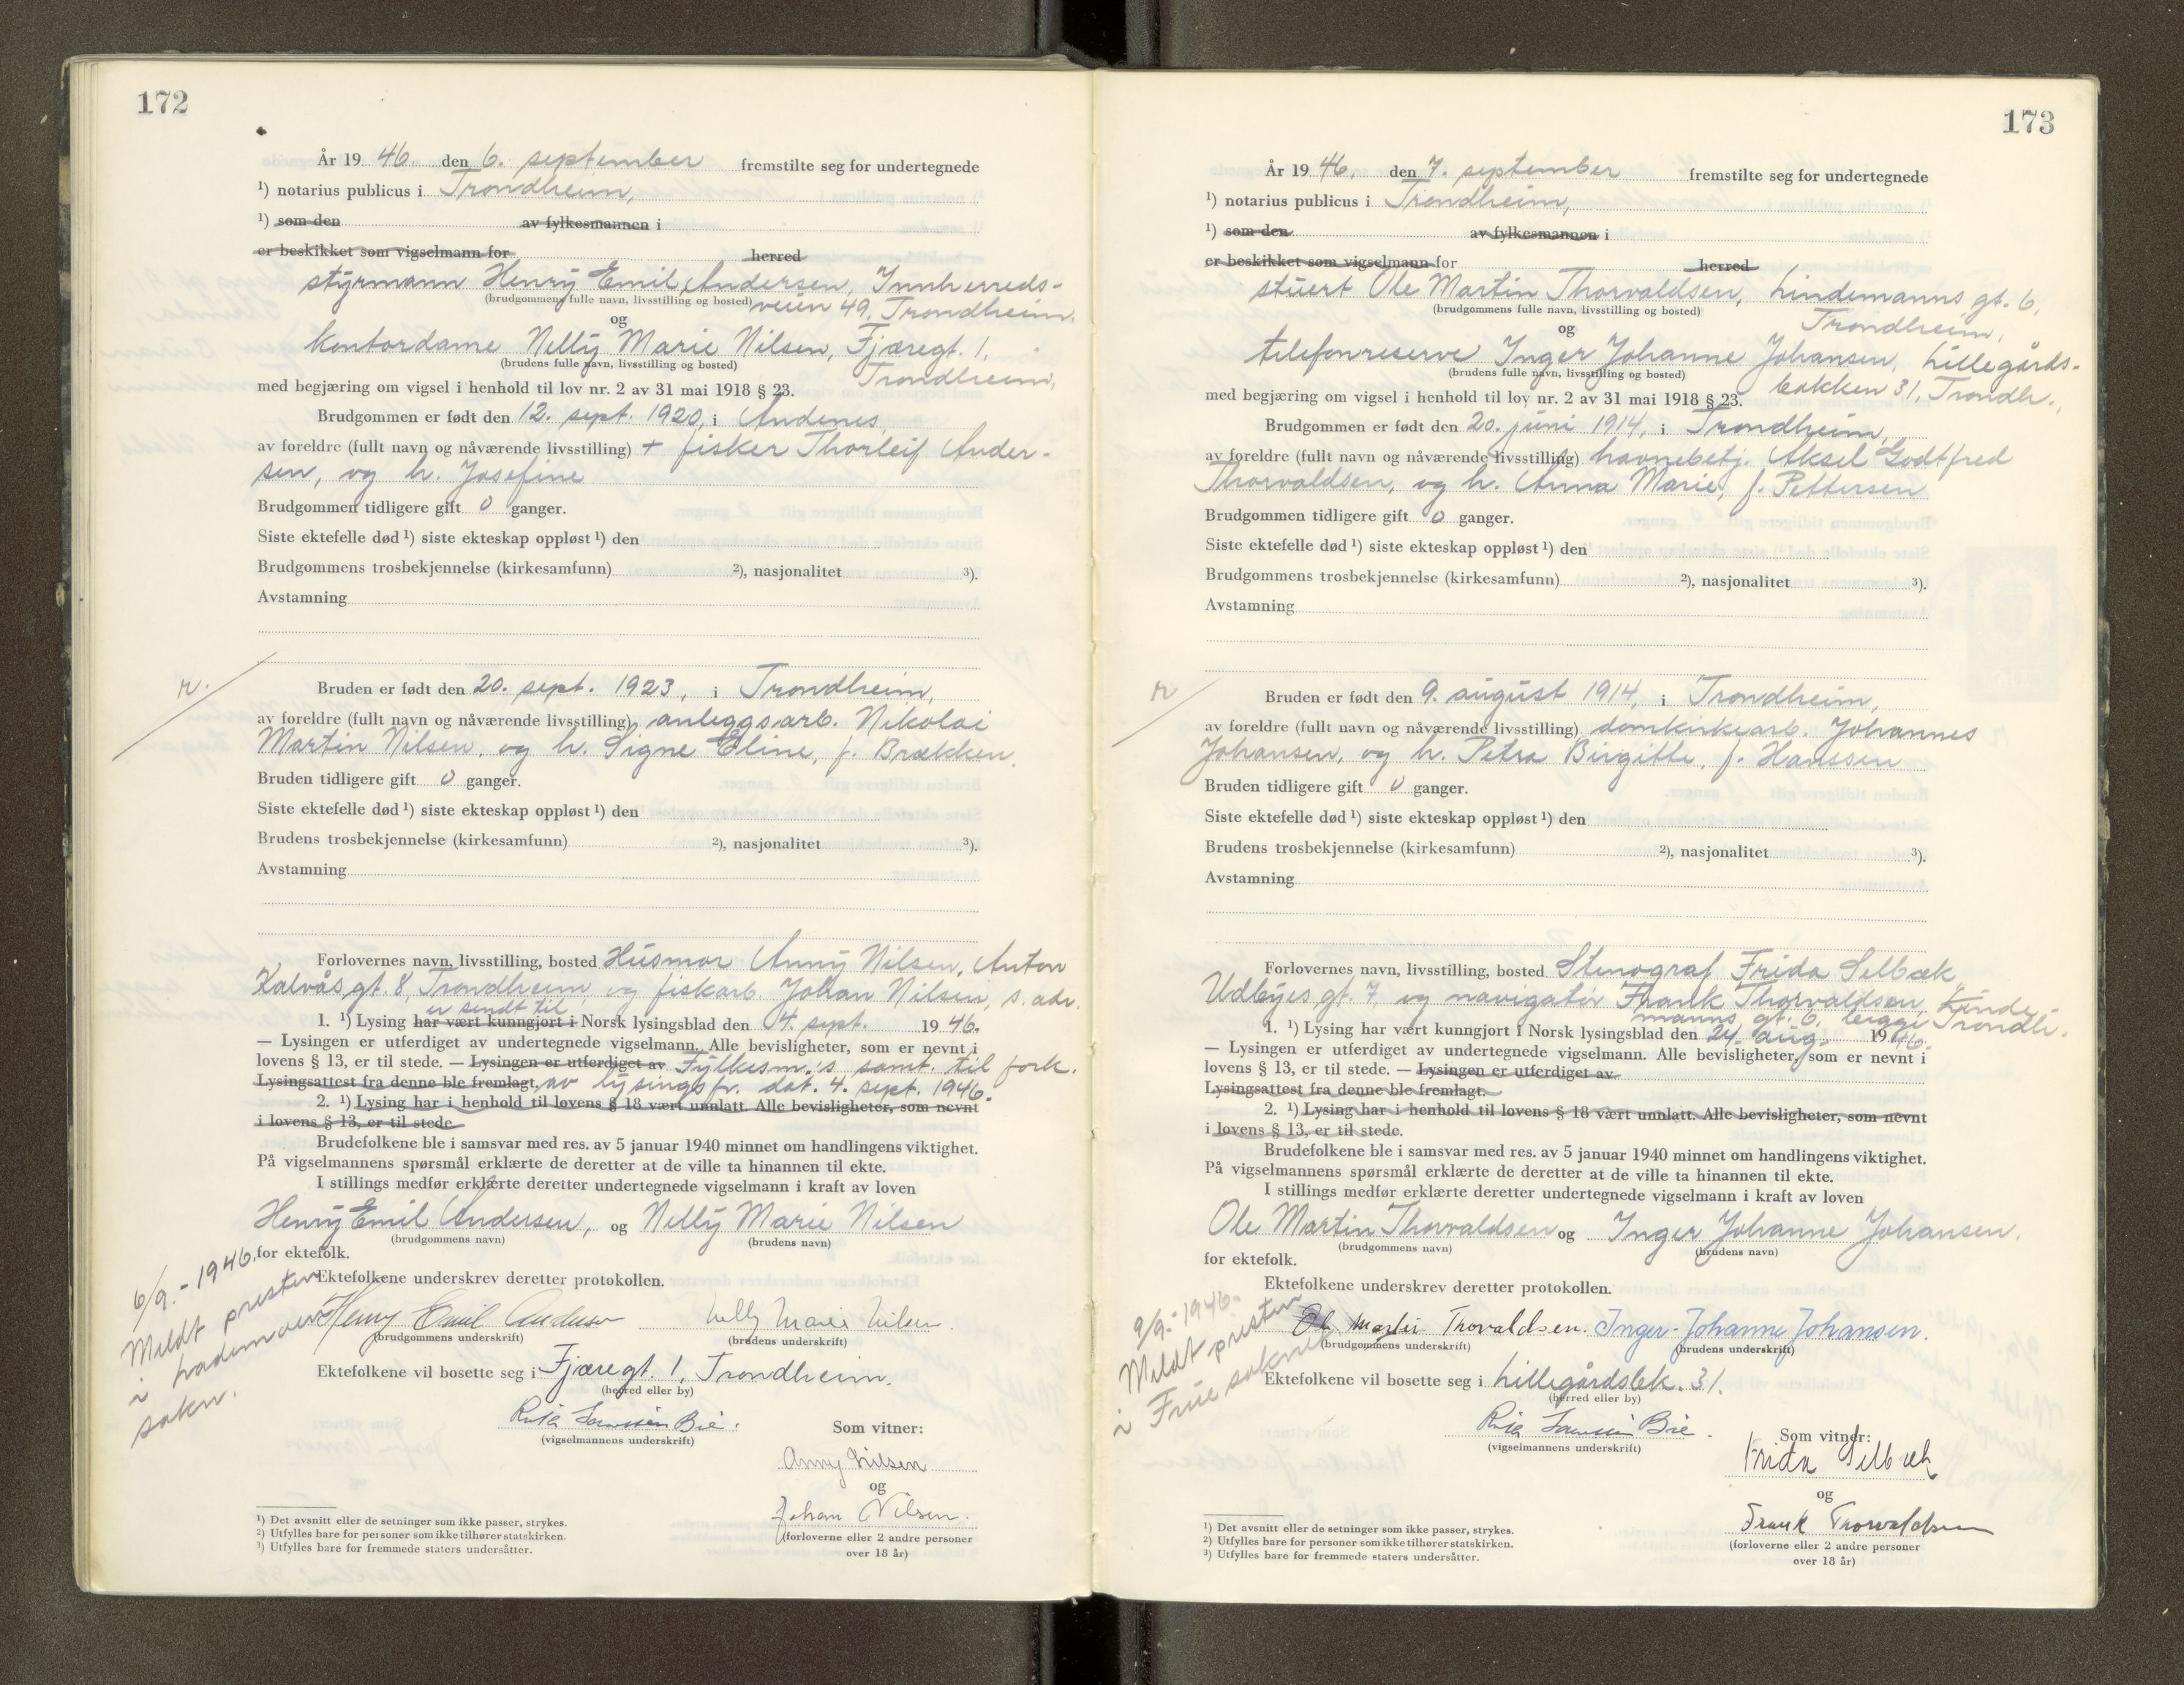 172
År 19 46. den 6. september fremstilte seg for undertegnede
¹) notarius publicus i Trondheim,
¹) som den av fylkesmannen i
er beskikket som vigselmann for herred
styrmann Henry Emil Andersen, Innherreds-
(brudgommens fulle navn, livsstilling og bosted) veien 49, Trondheim.
og
kontordame Nelly Marie Nilsen, Fjæregt. 1,
(brudens fulle navn, livsstilling og bosted)
Trondheim,
med begjæring om vigsel i henhold til lov nr. 2 av 31 mai 1918 § 23.
Brudgommen er født den 12. sept. 1920, i Andenes,
av foreldre (fullt navn og nåværende livsstilling) + fisker Thorleif Ander-
sen, og h. Josefine
Brudgommen tidligere gift 0 ganger.
Siste ektefelle død ¹) siste ekteskap oppløst ¹) den
Brudgommens trosbekjennelse (kirkesamfunn) ²), nasjonalitet ³).
Avstamning
r.
Bruden er født den 20. sept. 1923, i Trondheim,
av foreldre (fullt navn og nåværende livsstilling) anleggsarb. Nikolai
Martin Nilsen, og h. Signe Eline, f. Brækken.
Bruden tidligere gift 0 ganger.
Siste ektefelle død ¹) siste ekteskap oppløst ¹) den
Brudens trosbekjennelse (kirkesamfunn) ²), nasjonalitet ³).
Avstamning
Forlovernes navn, livsstilling, bosted Husmor Anny Nilsen, Anton
Kalvås gt. 8, Trondheim, og fiskarb. Johan Nilsen, s. adr.
er sendt til
1. ¹) Lysing har vært kunngjort i Norsk lysingsblad den 4. sept. 19 46.
— Lysingen er utferdiget av undertegnede vigselmann. Alle bevisligheter, som er nevnt i
lovens § 13, er til stede. — Lysingen er utferdiget av Fylkesm.'s samt. til fork.
Lysingsattest fra denne ble fremlagt, av lysingsfr. dat. 4. sept. 1946.
2. ¹) Lysing har i henhold til lovens § 18 vært unnlatt. Alle bevisligheter, som nevnt
i lovens § 13, er til stede
Brudefolkene ble i samsvar med res. av 5 januar 1940 minnet om handlingens viktighet.
På vigselmannens spørsmål erklærte de deretter at de ville ta hinannen til ekte.
I stillings medfør erklærte deretter undertegnede vigselmann i kraft av loven
Henry Emil Andersen, og Nelly Marie Nilsen
(brudgommens navn) (brudens navn)
for ektefolk.
Ektefolkene underskrev deretter protokollen.
6/9.-1946.
Meldt presten
i
sokn.
Henry Emil Andersen Nelly Marie Nilsen.
(brudgommens underskrift) (brudens underskrift)
Ektefolkene vil bosette seg i Fjæregt. 1, Trondheim.
(herred eller by)
Bie.
(vigselmannens underskrift)
Som vitner:
Anny Nilsen
og
Johan Nilsen.
(forloverne eller 2 andre personer
over 18 år)
¹) Det avsnitt eller de setninger som ikke passer, strykes.
²) Utfylles bare for personer som ikke tilhører statskirken.
³) Utfylles bare for fremmede staters undersåtter.
173
År 19 46. den 7. september fremstilte seg for undertegnede
¹) notarius publicus i Trondheim,
¹) som den av fylkesmannen i
er beskikket som vigselmann for herred
stuert Ole Martin Thorvaldsen, Lindemanns gt. 6,
(brudgommens fulle navn, livsstilling og bosted)
Trondheim,
og
telefonreserve Inger Johanne Johansen, Lillegårds-
(brudens fulle navn, livsstilling og bosted)
bakken 31, Trondh.,
med begjæring om vigsel i henhold til lov nr. 2 av 31 mai 1918 § 23.
Brudgommen er født den 20. juni 1914, i Trondheim,
av foreldre (fullt navn og nåværende livsstilling) havnebetj. Aksel Godtfred
Thorvaldsen, og h. Anna Marie, f. Pettersen
Brudgommen tidligere gift 0 ganger.
Siste ektefelle død ¹) siste ekteskap oppløst ¹) den
Brudgommens trosbekjennelse (kirkesamfunn) ²), nasjonalitet ³).
Avstamning
r
Bruden er født den 9. august 1914, i Trondheim,
av foreldre (fullt navn og nåværende livsstilling) domkirkearb. Johannes
Johansen, og h. Petra Birgitte, f. Hanssen
Bruden tidligere gift 0 ganger.
Siste ektefelle død ¹) siste ekteskap oppløst ¹) den
Brudens trosbekjennelse (kirkesamfunn) ²), nasjonalitet ³).
Avstamning
Forlovernes navn, livsstilling, bosted Stenograf Frida Selbæk,
Udbyes gt. 7, og navigatør Frank Thorvaldsen, Linde-
manns gt. 6, begge Trondh.
1. ¹) Lysing har vært kunngjort i Norsk lysingsblad den 24. aug. 19 46.
— Lysingen er utferdiget av undertegnede vigselmann. Alle bevisligheter, som er nevnt i
lovens § 13, er til stede. — Lysingen er utferdiget av
Lysingsattest fra denne ble fremlagt.
2. ¹) Lysing har i henhold til lovens § 18 vært unnlatt. Alle bevisligheter, som nevnt
i lovens § 13, er til stede.
Brudefolkene ble i samsvar med res. av 5 januar 1940 minnet om handlingens viktighet.
På vigselmannens spørsmål erklærte de deretter at de ville ta hinannen til ekte.
I stillings medfør erklærte deretter undertegnede vigselmann i kraft av loven
Ole Martin Thorvaldsen og Inger Johanne Johansen.
(brudgommens navn) (brudens navn)
for ektefolk.
Ektefolkene underskrev deretter protokollen.
9/9.-1946.
Meldt presten
i Frue sokn
Ole Martin Thorvaldsen. Inger-Johanne Johansen.
(brudgommens underskrift) (brudens underskrift)
Ektefolkene vil bosette seg i Lillegårdsbk. 31.
(herred eller by)
Bie.
(vigselmannens underskrift)
Som vitner:
Frida Selbæk
og
Frank Thorvaldsen
(forloverne eller 2 andre personer
over 18 år)
¹) Det avsnitt eller de setninger som ikke passer, strykes.
²) Utfylles bare for personer som ikke tilhører statskirken.
³) Utfylles bare for fremmede staters undersåtter.